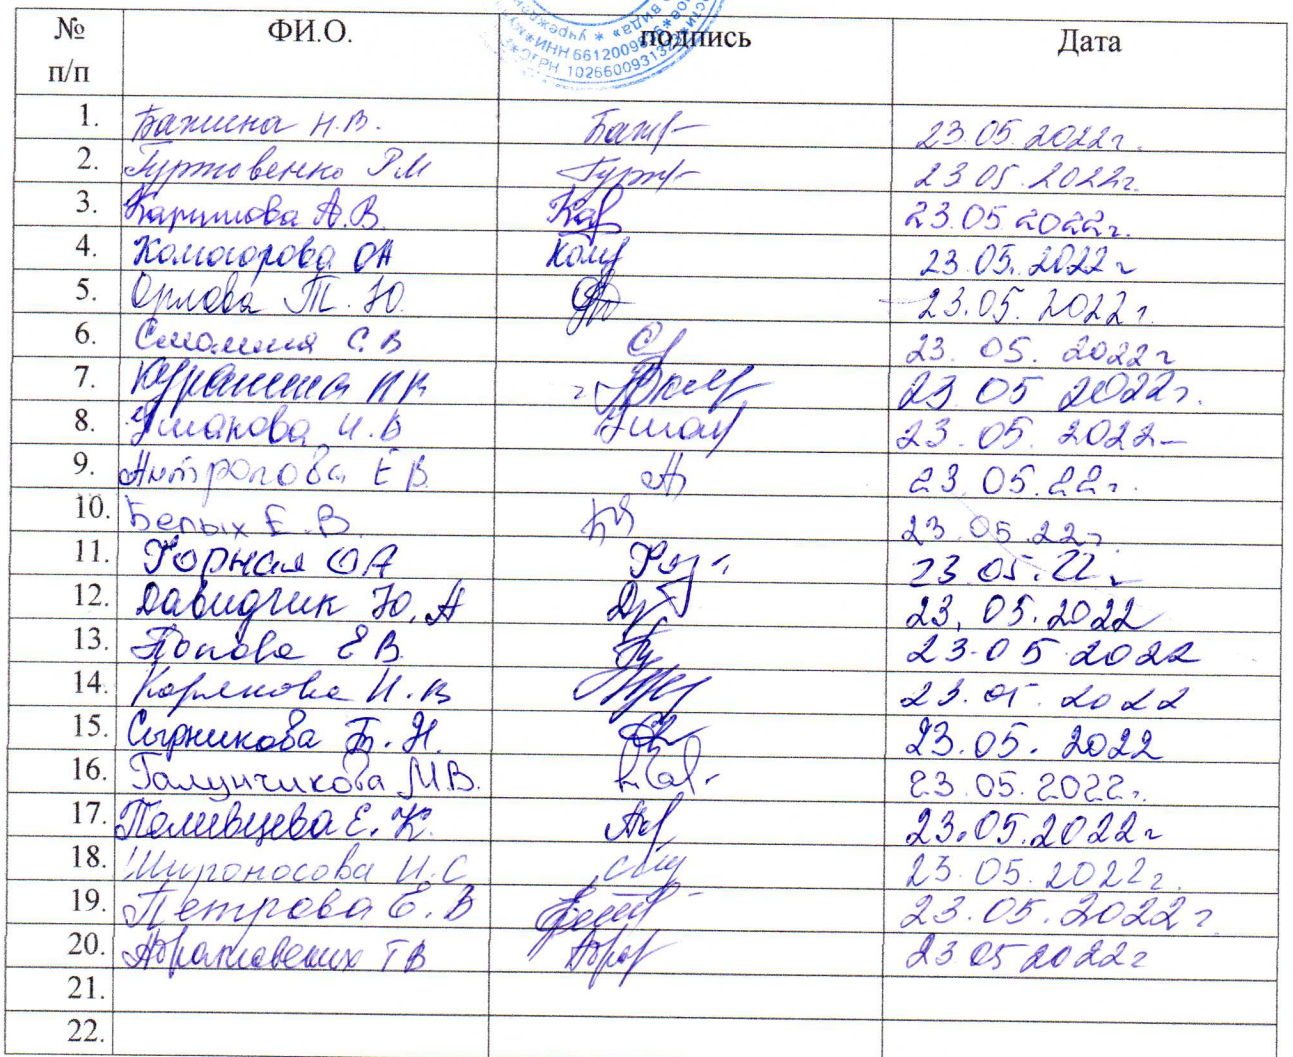 № п/п ФИ.О. подпись Дата
учрежден * «ИНН 6612009
ОГРН 1026600931
1. Бажина Н.В. Баж 23.05.2022г.
2. Гуртовенко Р.М 23 05. 2022г.
3. Каримова А.В. Кар 23.05 2022г.
4. Комогорова ОН Кому 23.05.2022г
5. Орлова Т.Ю. 23.05.2022г.
6. С.В 23. 05. 2022г
7. 23 05 2022г.
8. Ушакова И.В Ушак 23.05. 2022
9. Антропова Е В. 23.05.22г.
10. Белых Е.В. 23.05.22г.
11. Горная ОА 23.05.22г
12. Давидчик Ю.А 23.05.2022
13. Попова ЕВ. 23.05 2022
14. Корликова И.В 23.05.2022
15. Сырникова Т.Н. 23.05.2022
16. Галунчикова М.В. 23.05.2022г.
17. Поливцева Е.К. 23.05.2022г
18. Широносова И.С 23.05.2022г.
19. Петрова Е.В 23.05.2022г
20. Абрамовских ТВ Абр 23 05 2022г
21.
22.